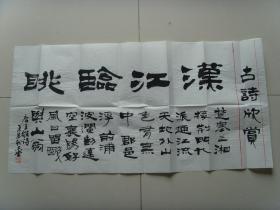 古詩欣賞
漢江臨眺
楚塞三湘
接荊門九
派通江流
天地外山
色有無
中郡邑
浮前浦
波瀾動遠
空襄陽好
風日留醉
與山翁
唐王維詩